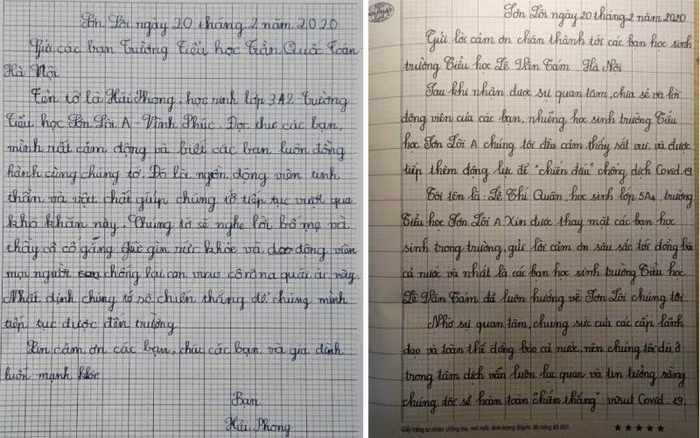 Sơn Lôi ngày 20 tháng 2 năm 2020
Gửi các bạn Trường Tiểu học Trần Quốc Toản
Hà Nội
Tên tớ là Hải Phong, học sinh lớp 3A2 Trường
Tiểu học Sơn Lôi A - Vĩnh Phúc. Đọc thư các bạn,
mình rất cảm động và biết các bạn luôn đồng
hành cùng chúng tớ. Đó là nguồn động viên tinh
thần và vật chất giúp chúng tớ tiếp tục vượt qua
khó khăn này. Chúng tớ sẽ nghe lời bố mẹ và
thầy cô cố gắng giữ gìn sức khỏe và động viên
mọi người chống lại con virus côrôna quái ác này.
Nhất định chúng tớ sẽ chiến thắng để chúng mình
tiếp tục được đến trường.
Xin cảm ơn các bạn, chúc các bạn và gia đình
luôn mạnh khỏe
Bạn
Hải Phong
Sơn Lôi ngày 20 tháng 2 năm 2020
Gửi lời cảm ơn chân thành tới các bạn học sinh
trường Tiểu học Lê Văn Tám - Hà Nội
Sau khi nhận được sự quan tâm, chia sẻ và lời
động viên của các bạn, những học sinh trường Tiểu
học Sơn Lôi A chúng tôi đều cảm thấy rất vui và được
tiếp thêm động lực để "chiến đấu" chống dịch Covid.19
Tôi tên là Lê Thí Quân, học sinh lớp 5A4, trường
Tiểu học Sơn Lôi A. Xin được thay mặt các bạn học
sinh trong trường, gửi lời cảm ơn sâu sắc tới đồng bào
cả nước và nhất là các bạn học sinh trường Tiểu học
Lê Văn Tám đã luôn hướng về Sơn Lôi chúng tôi.
Nhờ sự quan tâm, chung sức của các cấp lãnh
đạo và toàn thể đồng bào cả nước, nên chúng tôi dù ở
trong tâm dịch vẫn luôn lạc quan và tin tưởng rằng
chúng tôi sẽ hoàn toàn "chiến thắng" virut Covid.19.
★★★★★